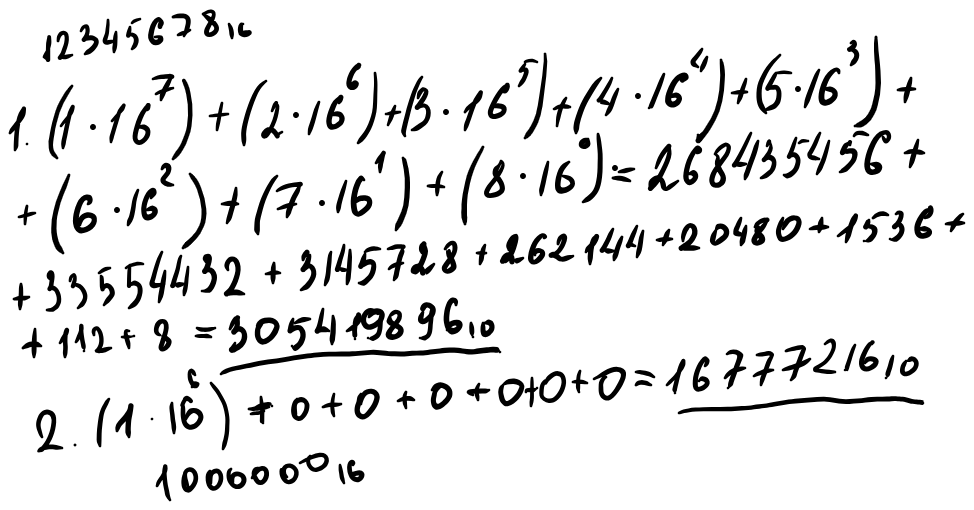 12345678₁₆
1. (1·16⁷)+(2·16⁶)+(3·16⁵)+(4·16⁴)+(5·16³)+
+(6·16²)+(7·16¹)+(8·16⁰)=268435456+
+33554432+3145728+262144+20480+1536+
+112+8=305419896₁₀
2. (1·16⁶)+0+0+0+0+0+0=16777216₁₀
1000000₁₆